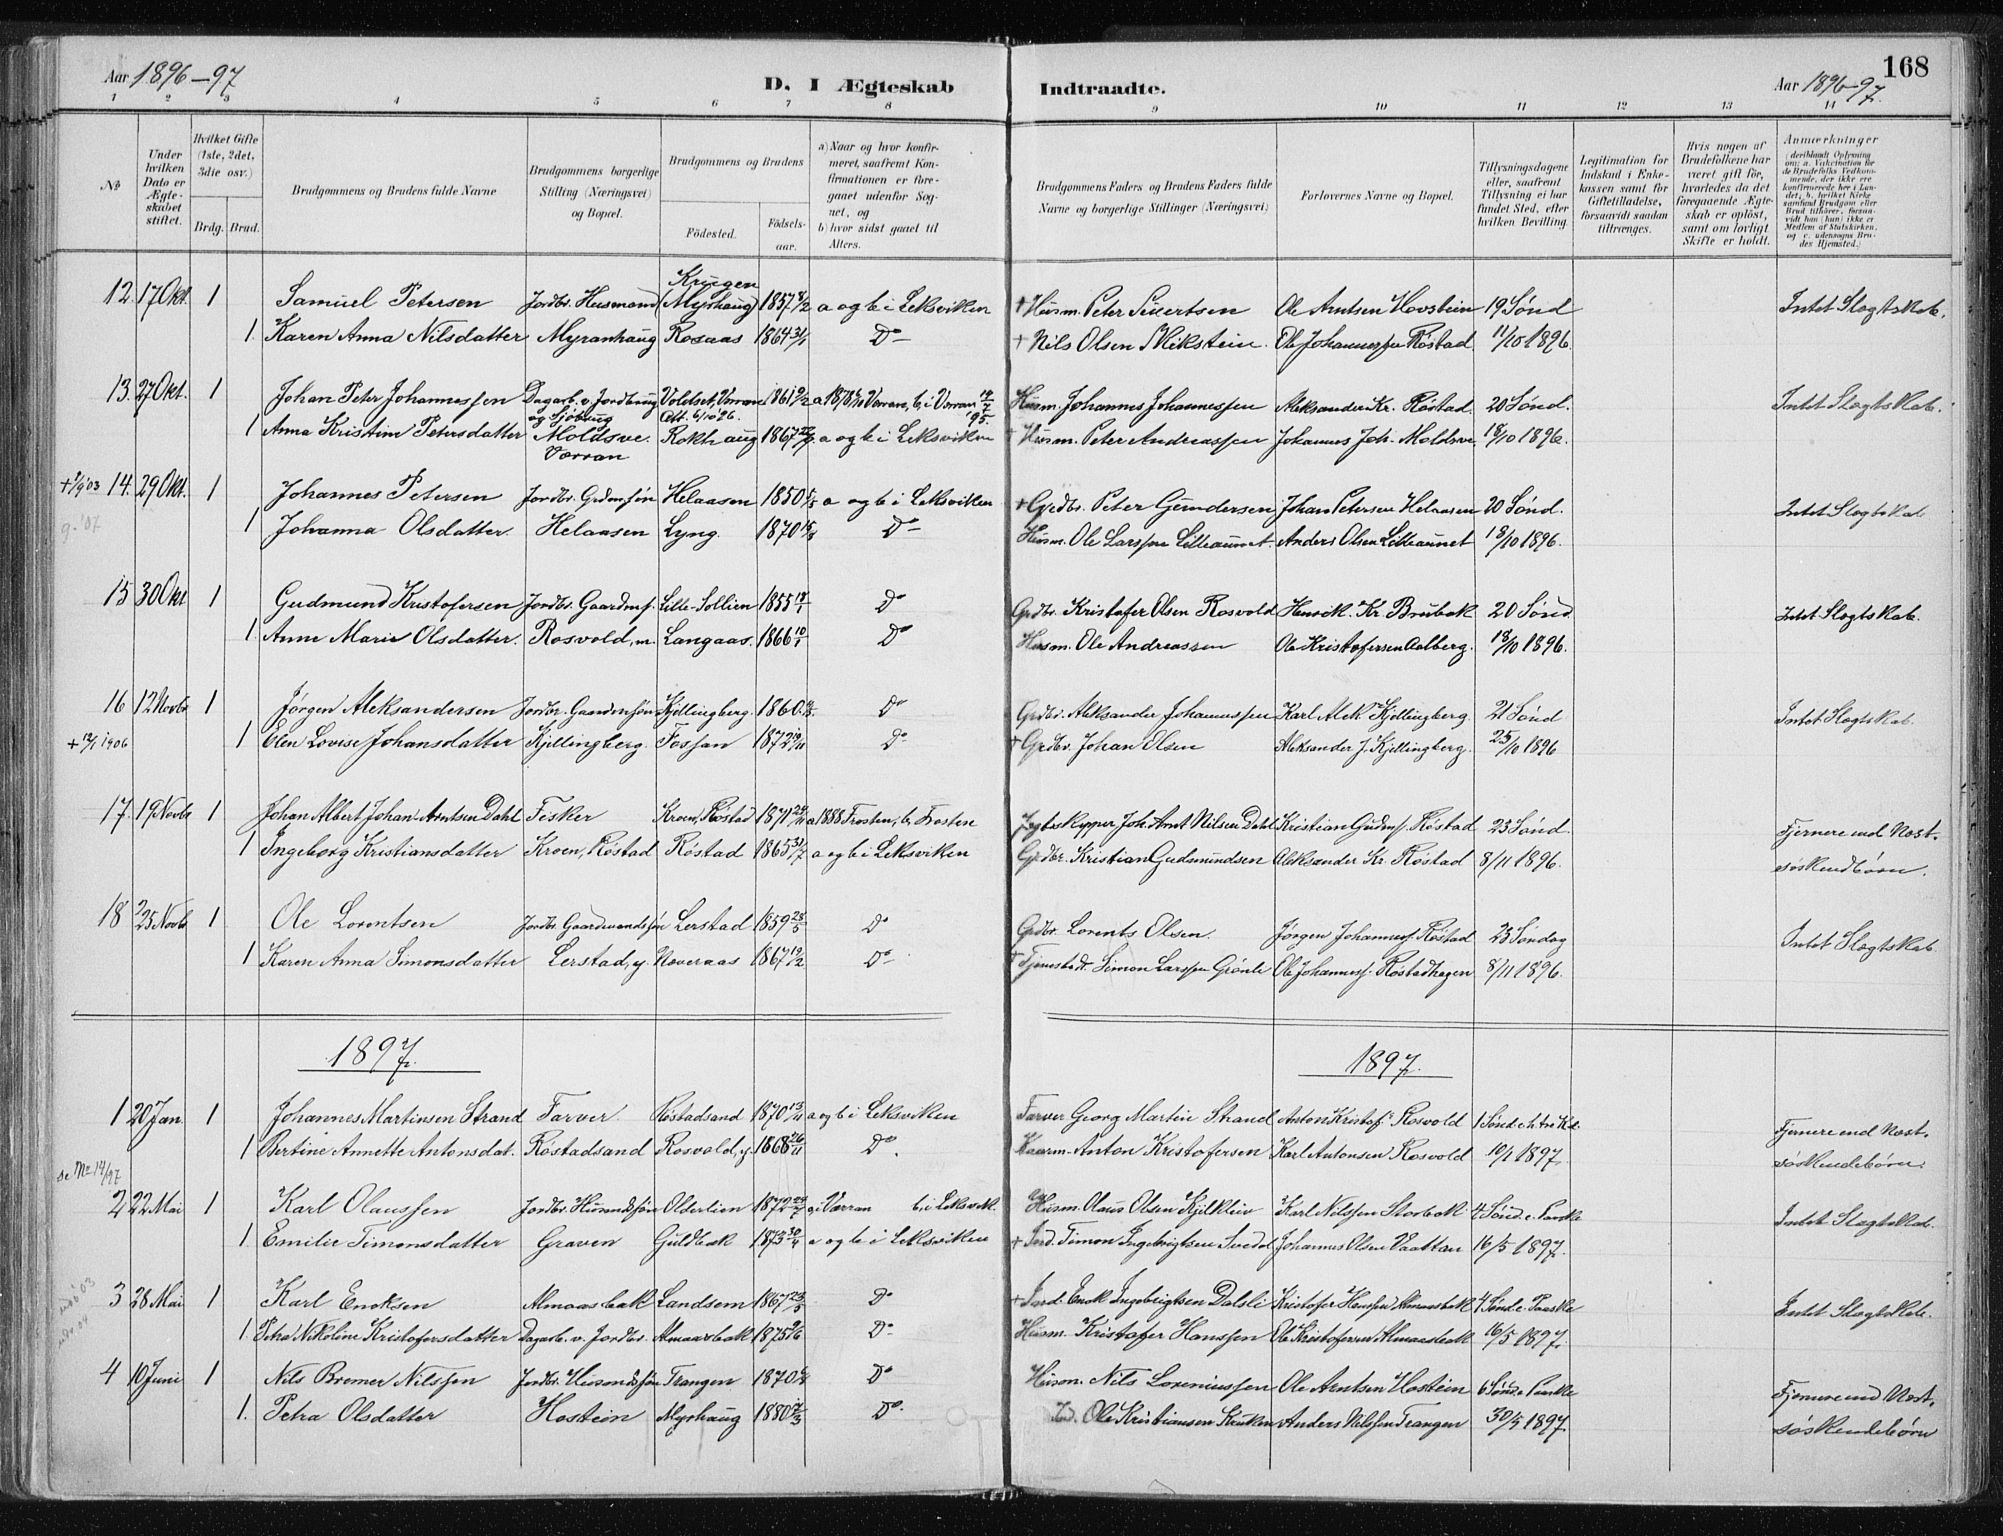 Aar 1896–97
D. I Ægteskab
Indtraadte.
Aar 1896–97.
168
1 2 3 4 5 6 7 8
9 10 11 12 13 14
№
Under hvilken Dato er Ægteskabet stiftet.
Hvilket Gifte (1ste, 2det, 3die osv.)
Brdg. Brud.
Brudgommens og Brudens fulde Navne
Brudgommens borgerlige Stilling (Næringsvei) og Bopæl.
Brudgommens og Brudens
Fødested.
Fødselsaar.
a) Naar og hvor konfirmeret, saafremt Konfirmationen er foregaaet udenfor Sognet, og
b) hvor sidst gaaet til Alters.
Brudgommens Faders og Brudens Faders fulde Navne og borgerlige Stillinger (Næringsvei)
Forlovernes Navne og Bopæl.
Tillysningsdagene eller, saafremt Tillysning ei har fundet Sted, efter hvilken Bevilling
Legitimation for Indskud i Enkekassen samt for Giftetilladelse, forsaavidt saadan tiltrænges.
Hvis nogen af Brudefolkene har været gift før, hvorledes da det foregaaende Ægteskab er opløst, samt om lovligt Skifte er holdt.
Anmærkninger
(deriblandt Oplysning om: a. Vakcination for de Brudefolks Vedkommende, der ikke ere konfirmerede her i Landet, b. hvilket Kirkesamfund Brudgom eller Brud tilhører, forsaavidt han (hun) ikke er Medlem af Statskirken, og c. udensogns Brudes Hjemsted.)
Krugen
12. 17 Okt. 1 Samuel Petersen Jordbr. Husmand (Myrhaug) 1857 a og b i Leksviken + Husm. Peter Sivertsen Ole Arntsen Hovstein 19 Sønd Intet Slagtskab.
1. Karen Anna Nilsdatter Myranhaug Rosaas 1864 D° + Nils Olsen Mikstein. Ole Johannessen Røstad 11/10 1896.
13. 27 Okt. 1 Johan Peter Johannessen Dagarb. v. Jordbrug og Sjøbrug Voldset, Værran Att. 6/10 96. 1861 a 1878 Værran, b, i Værran Husm. Johannes Johannessen Aleksander Kr. Røstad. 20 Sønd. Intet Slagtskab.
1 Anna Kristine Petersdatter Moldsve. Værran Rokhaug 1867 a og b i Leksviken Husm. Peter Andreassen Johannes Joh. Moldsve. 18/10 1896.
14. 29 Okt. 1 Johannes Petersen Jordbr. Grdmsøn Helaasen 1850 a og b i Leksviken + Grdbr. Peter Gundersen Johan Petersen Helaasen 20 Sønd. Intet Slagtskab
1 Johanna Olsdatter Helaasen Lyng. 1870 D° Husm. Ole Larssen Lilleaunet. Anders Olsen Lilleaunet 18/10 1896.
15 30 Okt 1 Gudmund Kristofersen Jordbr. Gaardmf. Lille-Sollien 1855 D° Grdbr. Kristofer Olsen Rosvold Henrik Kr. Brubak 20 Sønd Intet Slagtskab.
1. Anne Marie Olsdatter. Rosvold, m. Langaas. 1866 D° Husm. Ole Andreassen Ole Kristofersen Aalberg. 18/10 1896.
16 12 Novbr 1 Jørgen Aleksandersen Jordbr. Gaardmsøn Kjellingberg. 1860 D° Grdbr. Aleksander Johannessen Karl Alek. Kjellingberg. 21 Sønd Intet Slagtskab.
1906 1 Elen Lovise Johansdatter Kjellingberg. Fossan 1872 D° + Grdbr. Johan Olsen Aleksander J. Kjellingberg. 25/10 1896
17. 19 Novbr 1 Johan Albert Johan-Arntsen Dahl Fisker Kroen, Røstad 1871 a 1888 Frosten, b, Frosten Jagtskipper Joh. Arnt Nilsen Dahl Kristian Gudmf. Røstad 23 Sønd. Fjernere end Næst-
1 Ingeborg Kristiansdatter Kroen, Røstad Røstad 1865 a og b i Leksviken Grdbr. Kristian Gudmundsen Aleksander Kr. Røstad 8/11 1896. søskendbørn.
18 25 Novbr 1 Ole Lorentsen Jordbr. Gaardmandsøn Lerstad 1859 D° Grdbr. Lorents Olsen. Jørgen Johannesf. Røstad 23 Søndag Intet Slagtskab
1 Karen Anna Simonsdatter Lerstad, y. Noveraas 1867 D° Simon Larssen Grønli Ole Johannesf. Røstadhagen 8/11 1896.
1897.
1897.
1 20 Jan. 1 Johannes Martinsen Strand Farver. Røstadsand 1870 a og b i Leksviken Farver Georg Martin Strand Anton Kristof. Rosvold 1 Sønd e. h. tre K. Fjernere end Næst-
1 Bertine Annette Antonsdat. Røstadsand Rosvold, y. 1868 D°. Anton Kristofersen Karl Antonsen Rosvold 10/1 1897. søskendebørn.
se No 14/97
2 22 Mai 1 Karl Olaussen Jordbr. Husmdsøn Olderlien 1872 a i Værran b, i Leksvik. Husm. Olaus Olsen Kjelkleiv Karl Nilssen Storbak 4 Sønd e. Paaske Intet Slagtskab.
1. Emilie Timonsdatter Graven Guldbak 1873 a og b i Leksviken + Timon Ingebrigtsen Svedal Johannes Olsen Vaattan 16/5 1897.
3 28 Mai 1 Karl Enoksen Almaasbak Landsem 1867 D° + Enok Ingebrigtsen Dalsli Kristofer Hanssen Almaasbak 4 Sønd e. Paaske Intet Slagtskab.
1. Petra Nikoline Kristofersdatter Dagarb. v. Jordbr. Almaasbak 1875 D° Husm. Kristofer Hanssen Ole Kristofersen Almaasbak 16/5 1897.
4 10 Juni 1 Nils Bremer Nilssen Jordbr. Husmdsøn Trangen 1870 D° Husm. Nils Loreniussen Ole Arntsen Hostein 6 Sønd e. Paaske Fjernere end Næst-
1. Petra Olsdatter Hostein Myrhaug 1880 D° Ole Kristiansen Kruken Anders Nilssen Trangen 30/5 1897. søskendebørn